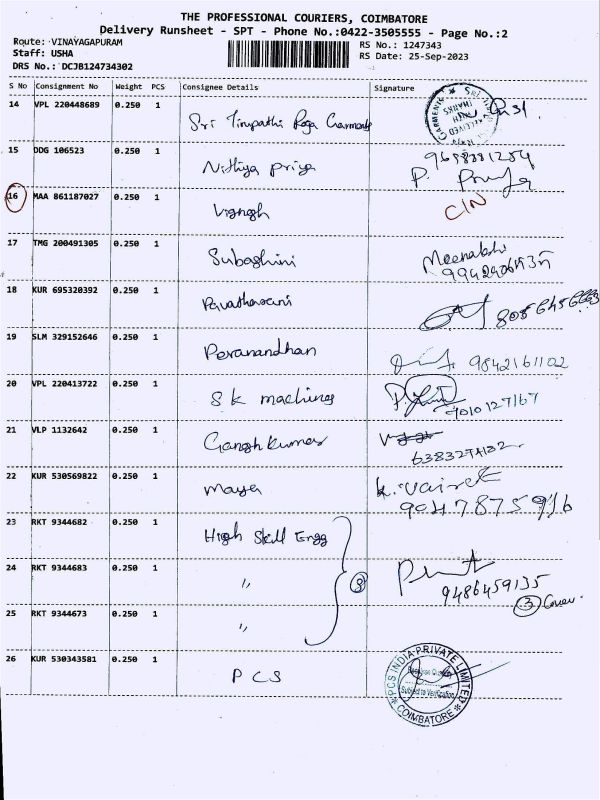 THE PROFESSIONAL COURIERS, COIMBATORE
Delivery Runsheet - SPT - Phone No.:0422-3505555 - Page No.:2
Route: VINAYAGAPURAM
Staff: USHA
DRS No.: DCJB124734302
RS No.: 1247343
RS Date: 25-Sep-2023
S No Consignment No Weight PCS Consignee Details Signature
14 VPL 220448689 0.250 1 Sri Tirupathi Raga Garments
15 DDG 106523 0.250 1 Nithya priya
P.
16 MAA 861187027 0.250 1 Vignesh C/N
17 TMG 200491305 0.250 1 Subashini Meenakshi
18 KUR 695320392 0.250 1
19 SLM 329152646 0.250 1 Peranandhan 9842161102
20 VPL 220413722 0.250 1 S k machines
7010127167
21 VLP 1132642 0.250 1 Ganesh kumar
6383274132
22 KUR 530569822 0.250 1 Maya K.
9047875916
23 RKT 9344682 0.250 1 High Skill Engg
24 RKT 9344683 0.250 1 " 3
9486459135
3 Cover
25 RKT 9344673 0.250 1 "
26 KUR 530343581 0.250 1 PCS
PCS INDIA PRIVATE LIMITED
Subject to Verification
COIMBATORE